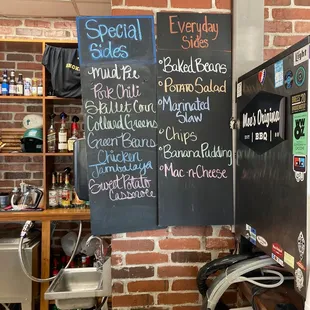 Special
Sides
Mud Pie
Pork Chili
Skillet Corn
Collard Greens
Green Beans
Chicken
Jambalaya
Sweet Potato
Casserole
Everyday
Sides
Baked Beans
Potato Salad
Marinated
Slaw
Chips
Banana Pudding
Mac-n-Cheese
Moe's Original
BBQ